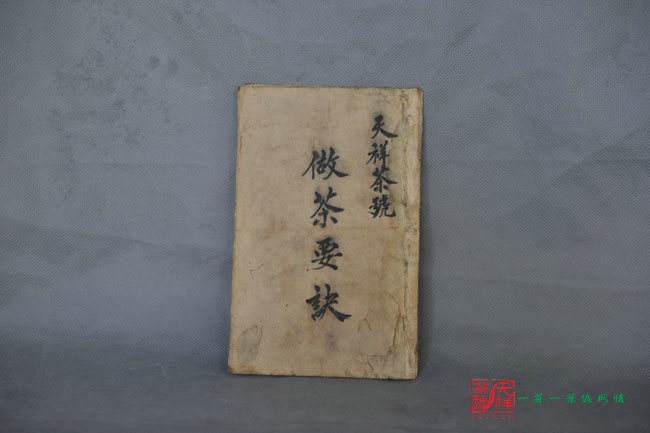 天祥茶號
做茶要訣
天祥茶號
一葉一葉總関情